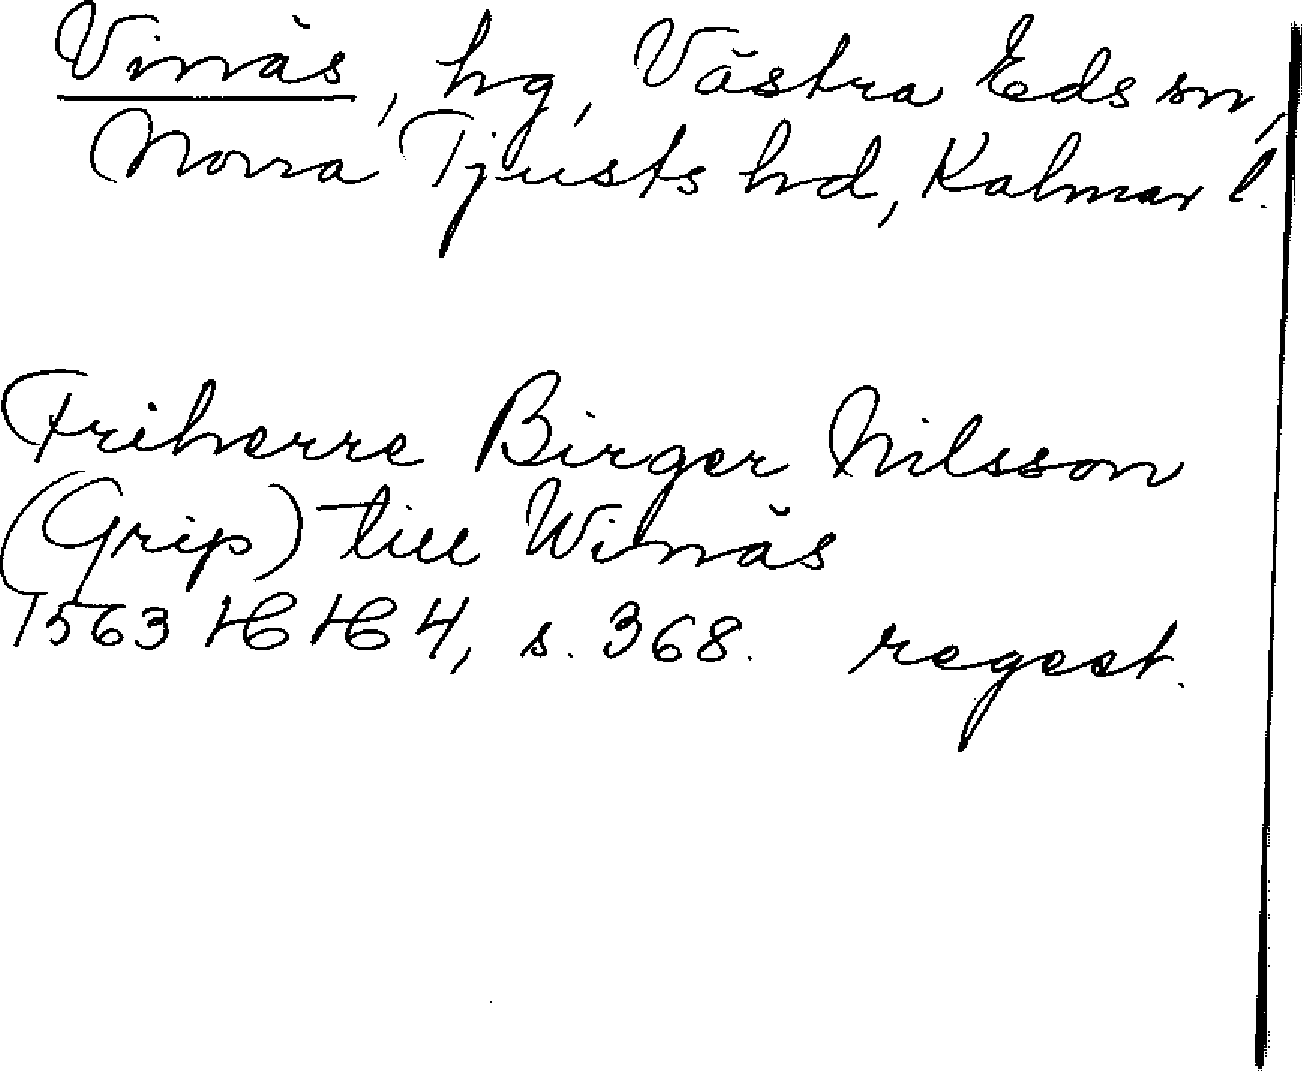 Vinäs, hg, Västra Eds sn,
Norra Tjusts hd, Kalmar l.
Friherre Birger Nilsson
(Grip) till Winäs
1563 HH 4, s. 368. regest.